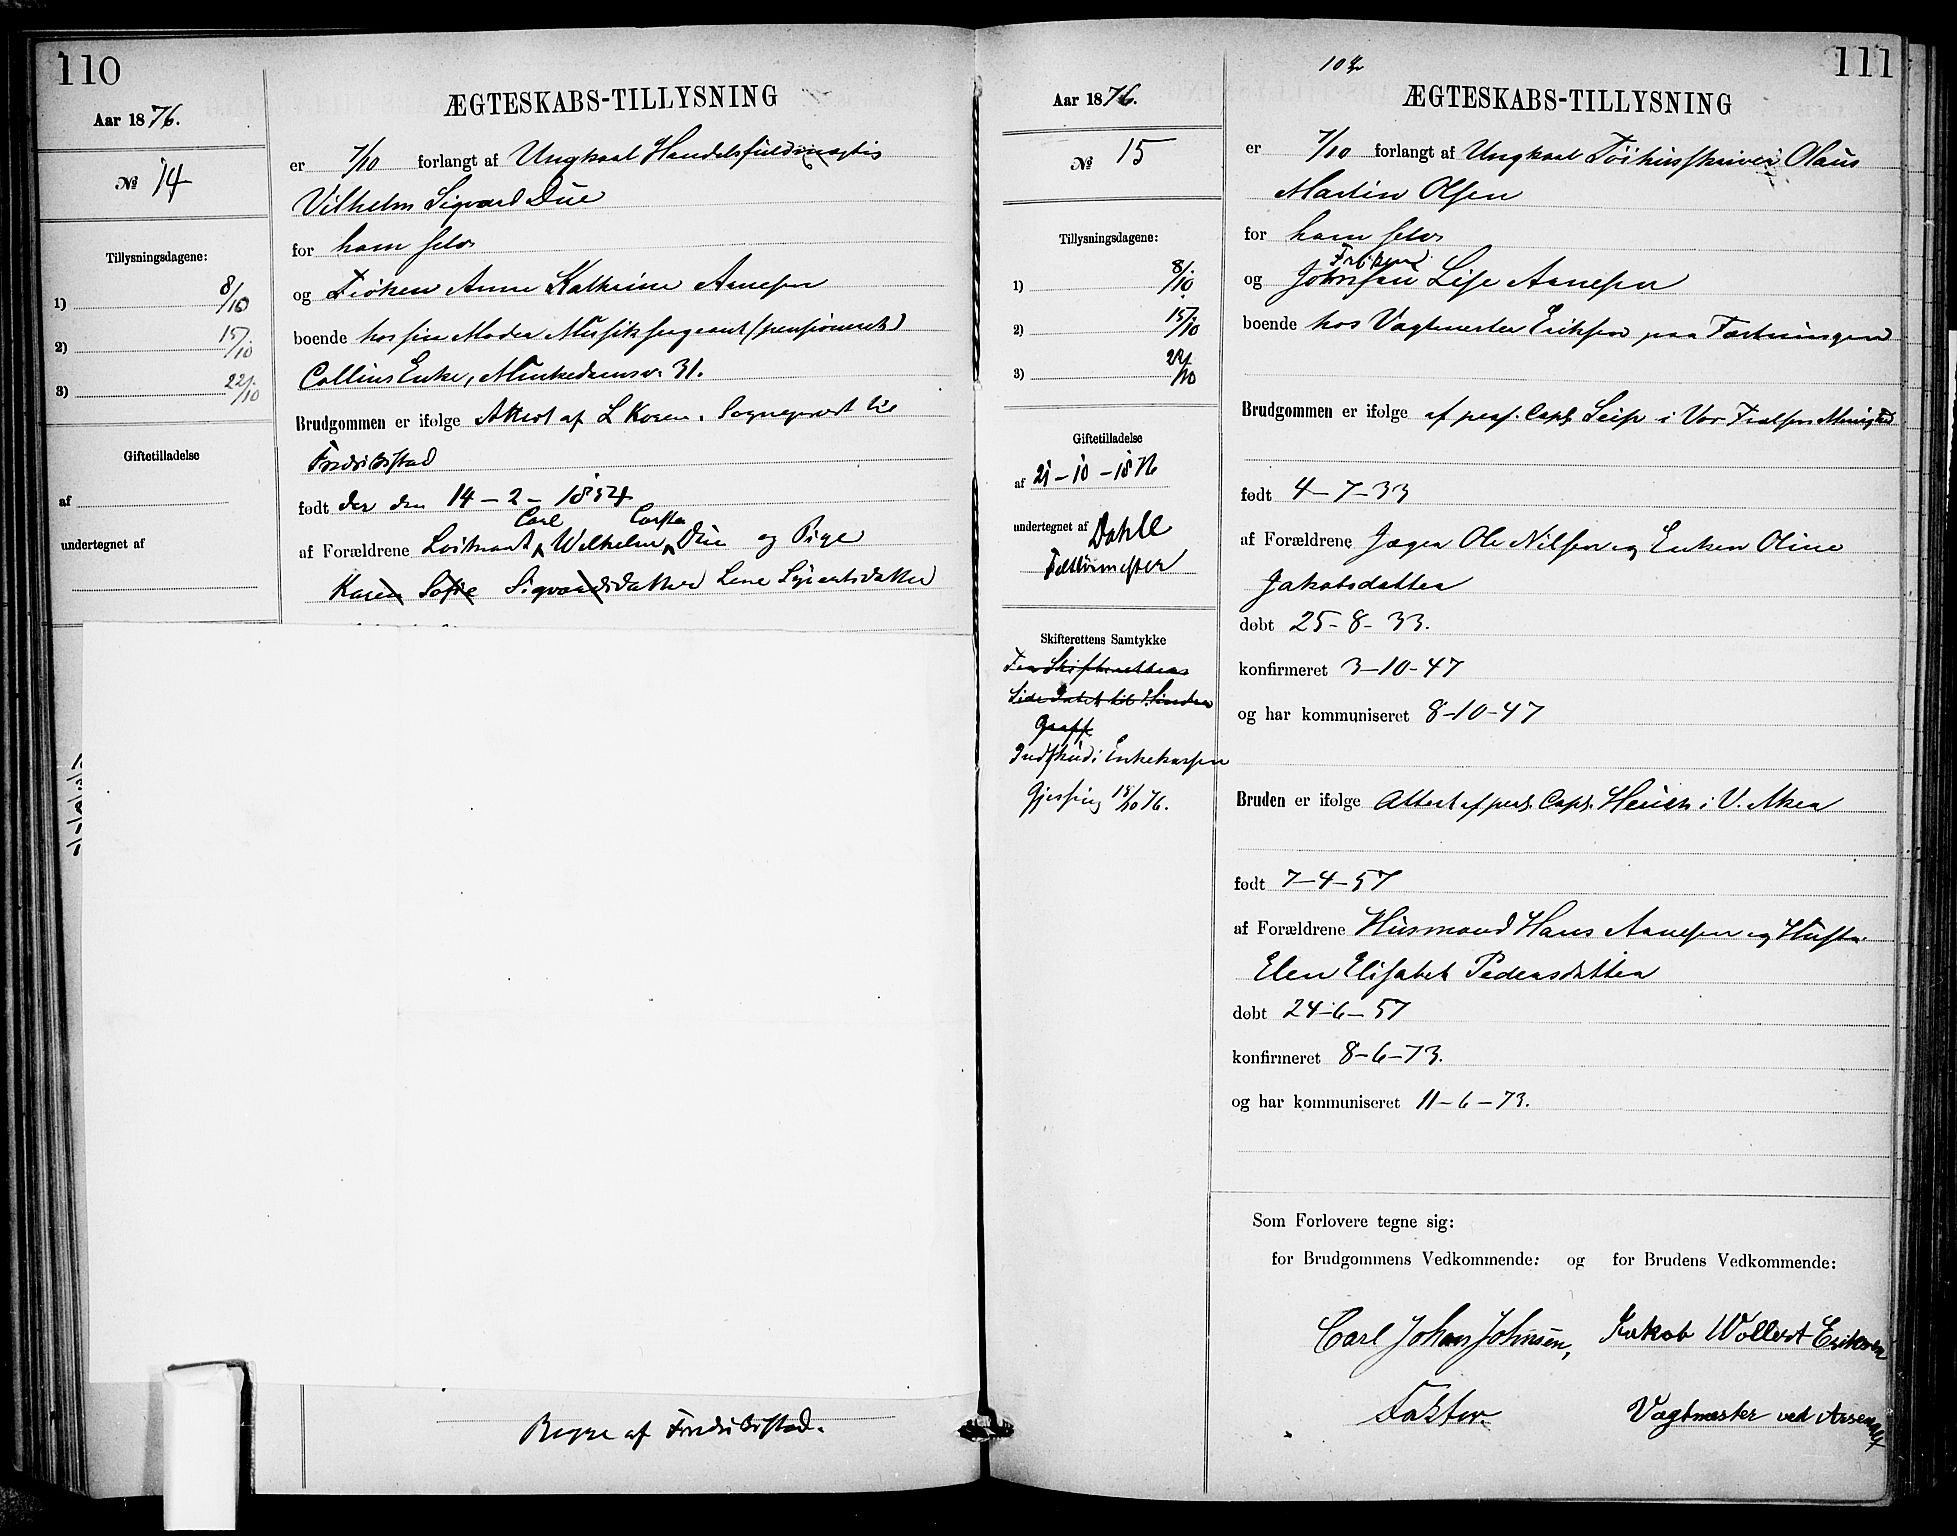 110
Aar 1876.
№ 14
Tillysningsdagene:
1) 8/10
2) 15/10
3) 22/10
Giftetilladelse
af
undertegnet af
ÆGTESKABS-TILLYSNING
er 7/10 forlangt af Ungkarl Handelsfuldmægtig
Vilhelm Sigvard Due
for ham selv
og Frøken Anne Kathrine Aanesen
boende hos sin Moder Musiksergeant (pensioneret)
Collins Enke, Munkedamsv. 31.
Brudgommen er ifølge Attest af L Koren. Sogneprest til
Fredrikstad
født der den 14-2-1854
Carl Carsten
af Forældrene Løitnant Wilhelm Due og Pige
Karen Sofie Sigvardsdatter Lene Sivertsdatter
Begge af Fredrikstad.
111
Aar 1876.
№ 15
Tillysningsdagene:
1) 8/10
2) 15/10
3) 22/10
Giftetilladelse
af 21-10-1876
undertegnet af Dahll
Felttøimester
Skifterettens Samtykke
Indskud i Enkekassen
Gjessing 18/10 76.
ÆGTESKABS-TILLYSNING
er 7/10 forlangt af Ungkarl Tøihusskriver Olaus
Martin Olsen
for ham selv
Frøken
og Lise Aanesen
boende hos Vagtmester Eriksen paa Fæstningen
Brudgommen er ifølge af pers. Capl. Seip i Vor Frelsers Menighed
født 4-7-33
af Forældrene Jæger Ole Nilsen og Enken Oline
Jakobsdatter
døbt 25-8-33.
konfirmeret 3-10-47
og har kommuniseret 8-10-47
Bruden er ifølge Attest af pers. Capl. Heuch i V. Aker
født 7-4-57
af Forældrene Husmand Hans Aanesen og Hustru
Elen Elisabet Pedersdatter
døbt 24-6-57
konfirmeret 8-6-73.
og har kommuniseret 11-6-73.
Som Forlovere tegne sig:
for Brudgommens Vedkommende: og for Brudens Vedkommende:
Carl Johan Johnsen, Jakob Wollert Eriksen
Faktor Vagtmester ved Arsenalet